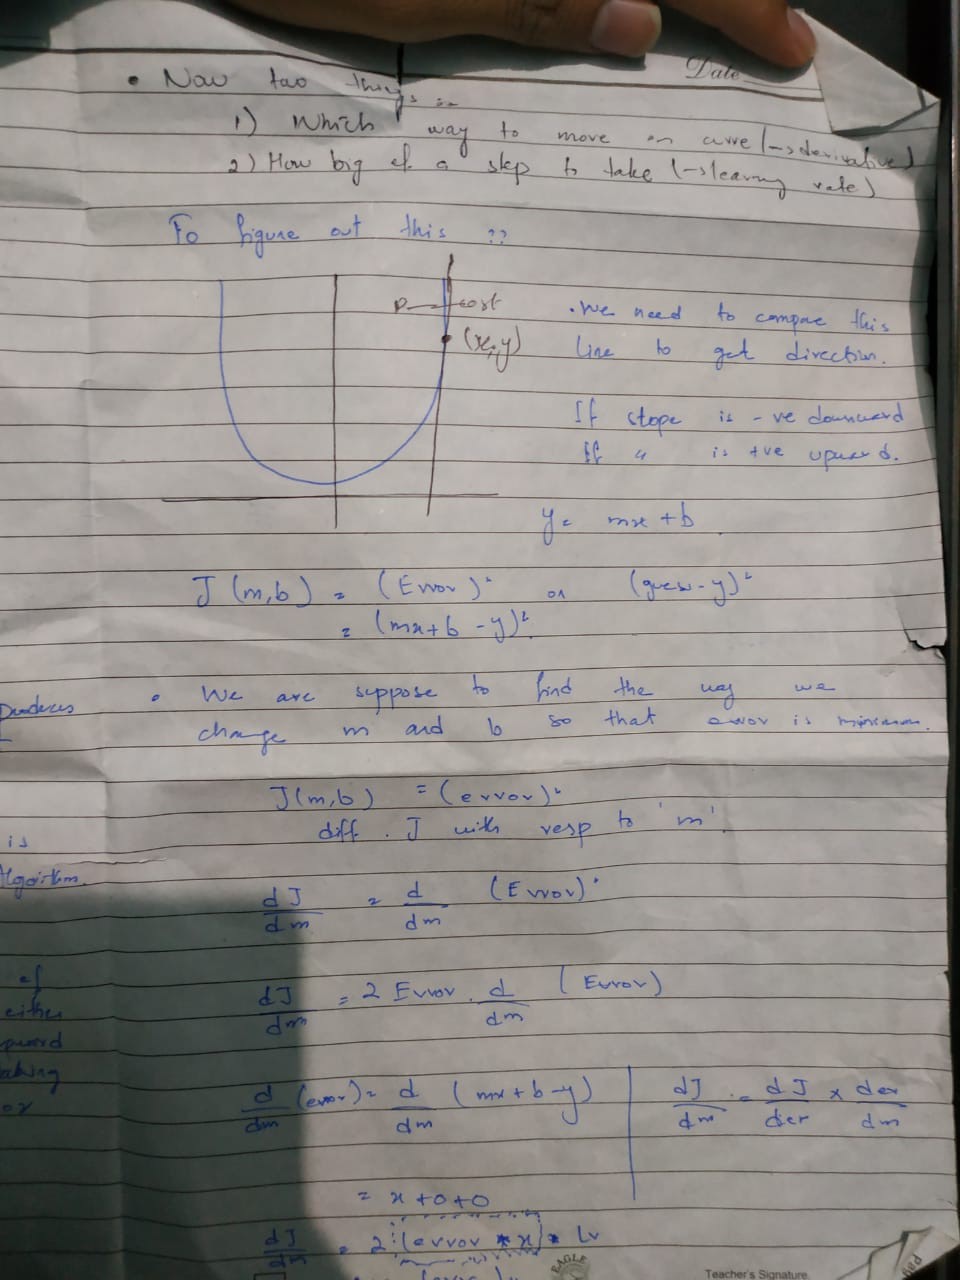 Date
• Now two things :-
1) Which way to move on curve (→derivative)
2) How big of a step to take (→learning rate)
To figure out this ??
cost
(x, y)
• We need to compare this
line to get direction.
If slope is -ve downward
If " is +ve upward.
y = mx + b
J (m,b) = (Error)² or (guess - y)²
= (mx + b - y)²
• We are suppose to find the way we
change m and b so that error is minimum.
J(m,b) = (error)²
diff. J with resp to 'm'.
is
Algorithm.
dJ/dm = d/dm (Error)²
of
either
dJ/dm = 2 Error . d/dm (Error)
d/dm (error) = d/dm (mx + b - y)
dJ/dm = dJ/der × der/dm
= x + 0 + 0
dJ/dm = 2 (error * x) * Lr
EAGLE
Teacher's Signature